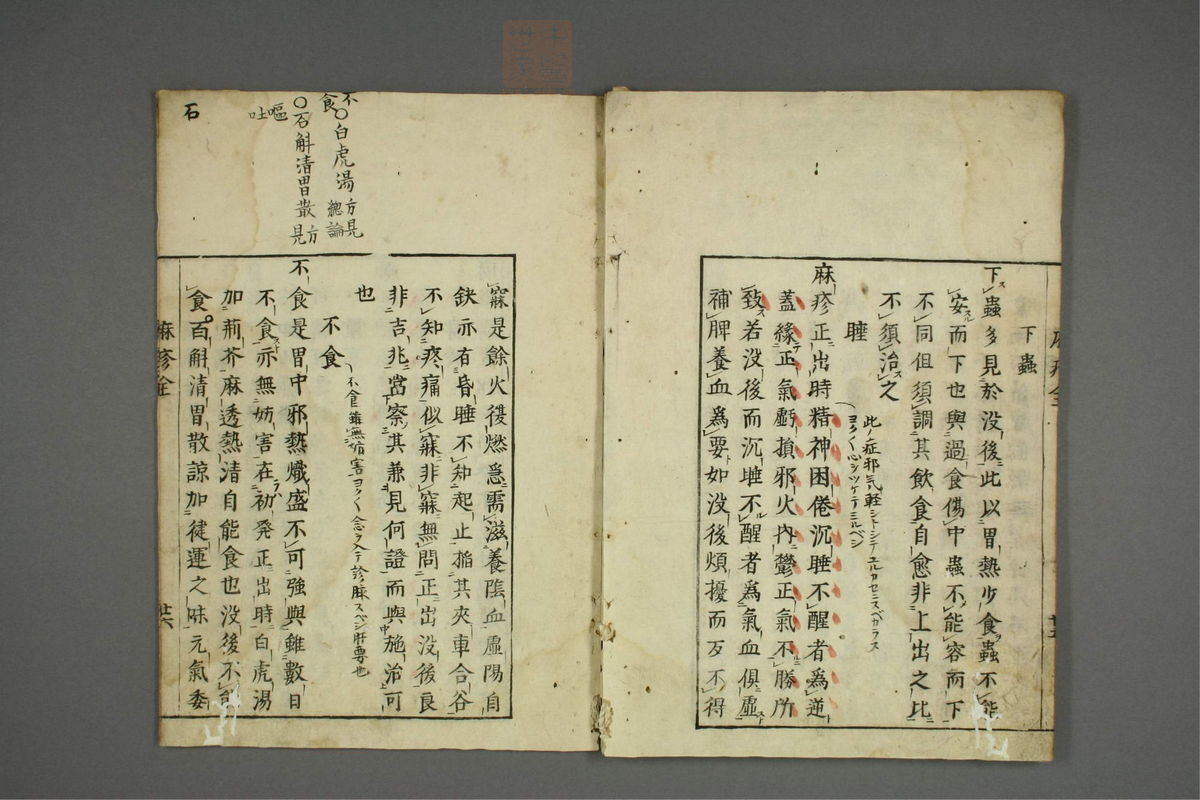 下蟲
下蟲多見於没後此以胃熱少食蟲不能
安而下也與過食傷中蟲不能容而下
不同但須調其飲食自愈非上出之比
不須治之
睡
此ノ症邪氣軽シトシテユルカセニスベカラス
ヨク〱心ヲツケテミルベシ
麻疹正出時精神困倦沉睡不醒者為逆
蓋縁正氣虧損邪火內鬱正氣不勝所
致若没後而沉睡不醒者為氣血俱虛
補脾養血為要如没後煩擾而不得
寐是餘火復燃急需滋養陰血虛陽自
欽亦有昏睡不知起止指其夾車合谷
不知疼痛似寐非寐無問正出没後良
非吉兆當察其兼見何證而與施治可
也
不食
不食雖無妨害ヨク〱念ヲ入テ診脈スベシ肝要也
不食是胃中邪熱熾盛不可強與雖數日
不食亦無妨害在初発正出時白虎湯
加荊芥麻透熱清自能食也没後不
食石斛清胃散諒加健運之味元氣委
不食
○白虎湯 方見總論
嘔吐
○石斛清胃散 方見
石
麻疹全
廿六